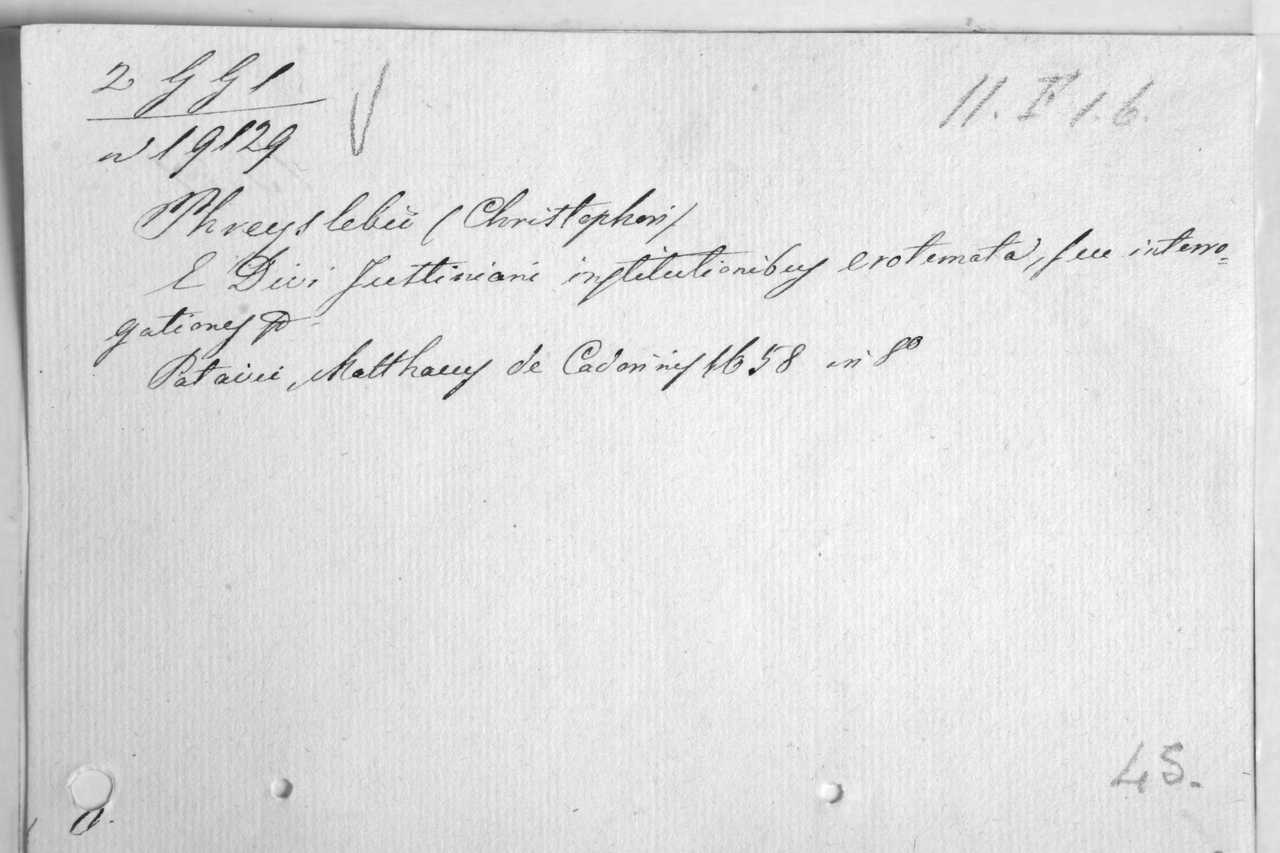 2 G G 1
n 19129
11. IV 1. 6.
Phreyslebii (Christophori)
E Divi Justiniani institutionibus erotemata, sue interro=
gationes
Patavii, Matthaeus de Cadorinis 1658 in 8º
45.